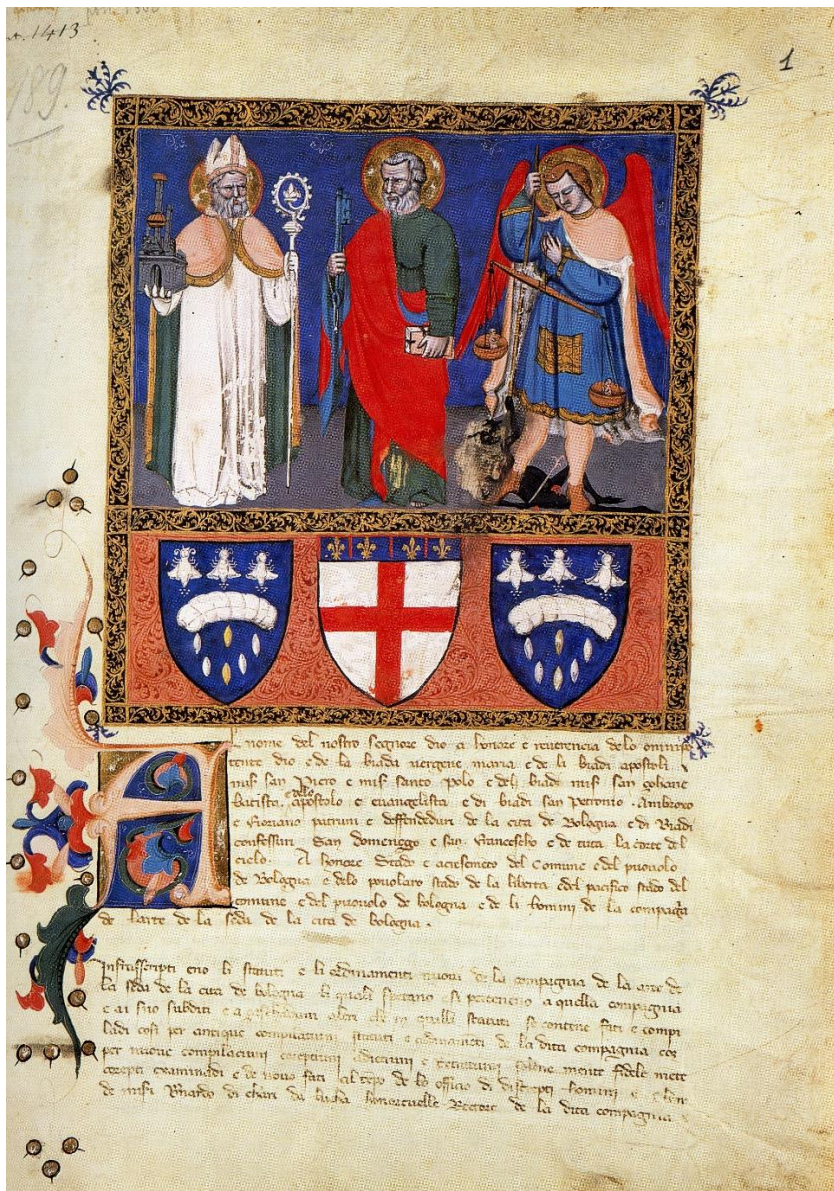 1413
189.
1
nome del nostro Segnore dio a honore e reuerencia delo omnipo
tente dio e de la biada uergene maria e de li biadi apostoli
mis san Piero e mis santo Polo e deli biadi mis san
batista, apostolo e euangelista e di biadi san Petronio. Ambroxo
e Floriano patruni e deffenduduri de la cita de Bologna e di Biadi
confessuri San domenego e san Francescho e de tuta la corte del
cielo. A honore Stado e acresemeto del Comune e del puouolo
de Bologna e delo pouolaro stado de la liberta e del pacifico stado del
comune e del puouolo de bologna e de li homini de la compagia
de larte de la seda de la cita de bologna.
Infrascripti eno li statuti e li ordinamenti nuoui de la compagnia de la arte de
la seda de la cita de bologna li quali spetano e si perteneno a quella compagnia
e ai suo subditi e a altri che in quilli statuti se contene fati e compi
ladi cosi per antique compilatiuni statuti e ordinameti de la dita compagnia
per nuoue compilaciuni mente fidele mete
examinadi e de nouo fati al tepo de lo officio di homini e
de misi da lucha Rectore de la dita compagnia